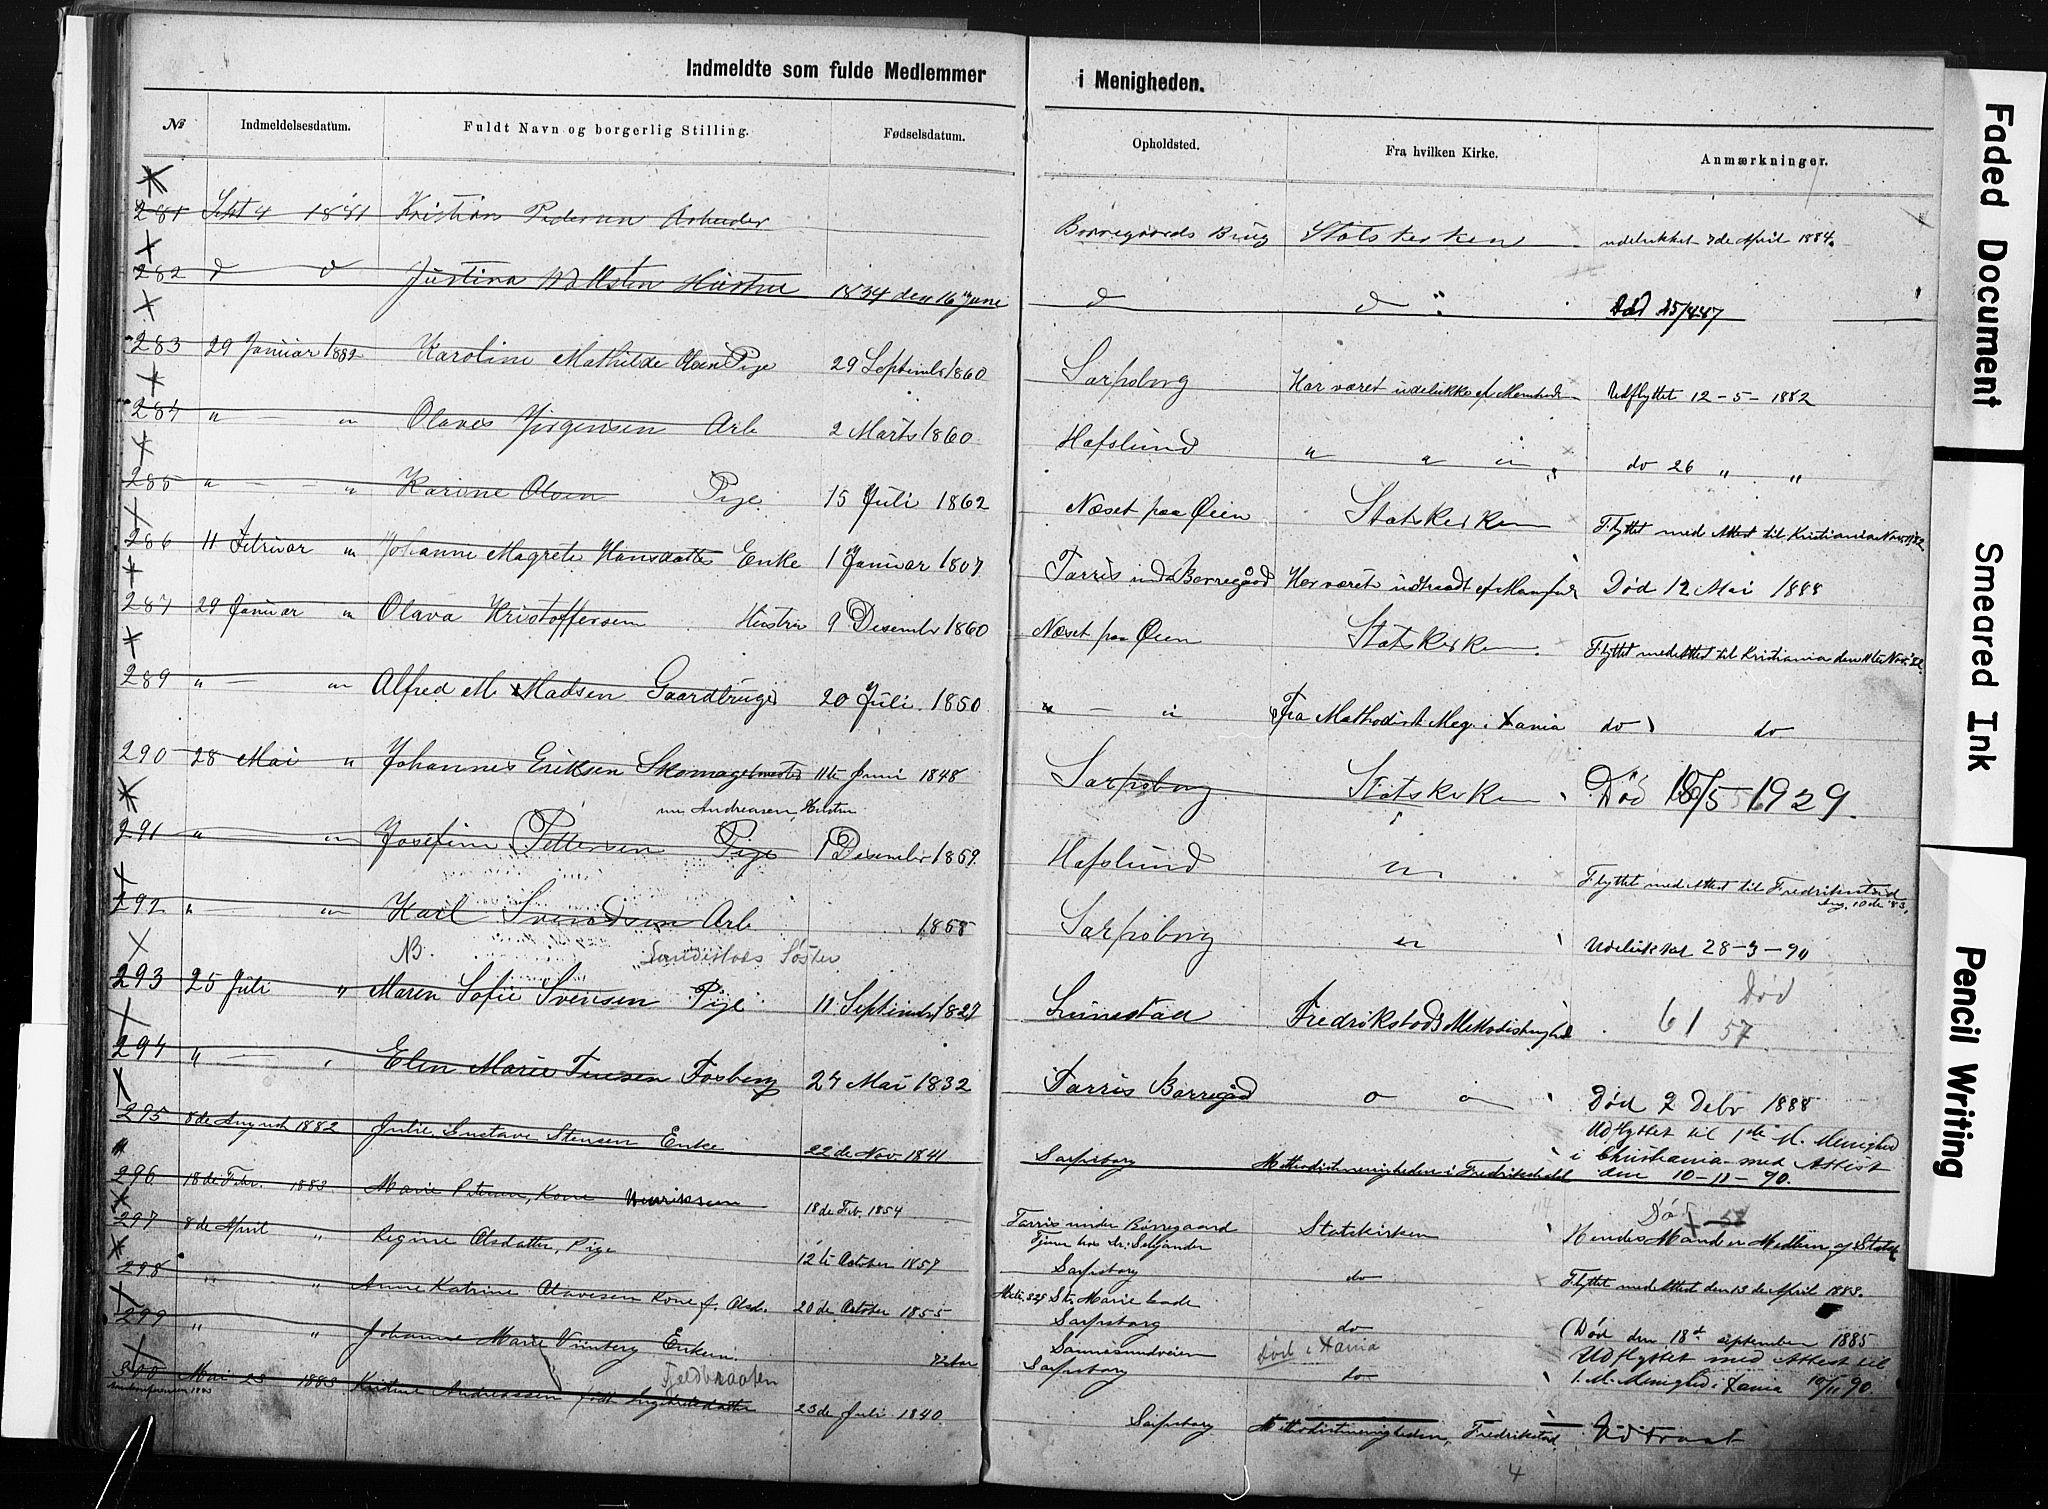 Indmeldte som fulde Medlemmer i Menigheden.
№ Indmeldelsesdatum. Fuldt Navn og borgerlig Stilling. Fødselsdatum. Opholdsted. Fra hvilken Kirke. Anmærkninger.
281 Sebt 4 1881 Kristian Pedersen Arbeider Borregaards Brug Statskirken udelukket 7de April 1884
282 d d Justina Wallsten Hustru 1834 den 16 June d d " Død 25/4 87
283 29 Januar 1882 Karoline Mathilde Olsen Pige 29 Septembr 1860 Sarpsborg Har været udelukke af Udflyttet 12-5-1882
284 " — " Olaves Jörgensen Arb 2 Marts 1860 Hafslund " " " do 26 " "
285 " — " Karine Olsen Pige 15 Juli 1862 Næset paa Øien Statskirken Flyttet med Attest til Kristiania Nov. 11/82
286 11 Februar " Johanne Magrete Hansdatter Enke 1 Januar 1807 Tarris und Borregård Har været udtraadt af Død 12 Mai 1888
287 29 Januar " Olava Kristoffersen Hustru 9 Desembr 1860 Næset paa Øien Statskirken Flyttet med Attest til Kristiania den 11te Nov. 82
289 " — " Alfred M. Madsen Gaardbruger 20 Juli 1850 " — " Fra Methodist Meg. i Xania do do
290 28 Mai " Johannes Eriksen Skomagermester 11te Juni 1848 Sarpsborg Statskirken Død 18/5 1929.
nu Andreasen, Hustru
291 " " Josefine Pettersen Pige 1 Desembr 1859. Hafslund " Flyttet med Attest til Fredrikstad
Aug. 10de 83.
292 " — " Karl Svendsen Arb 1858 Sarpsborg " Udelukket 28-3-90
NB. Søster
Død
293 25 Juli " Maren Sofie Svensen Pige 11 Septembr 1827 Lunestad Fredrikstads Methodistmenighed 61 57
294 " — " Elen Marie Tuesen Fosberg 27 Mai 1832 Tarris Borregård " " Død 2 Debr 1888
295 8de August 1882 Julie Gustave Stensen Enke 22de Nov 1841 Sarpsborg Methodistmenigheden i Fredrikshald Udflyttet til 1ste M. Menighed
i Christiania med Attest
den 10-11-90.
296 18de Febr. 1883. Marie Petersen, Kone Henriksen 18de Feb. 1854 Tarris under Borregaard Statskirken Død 57
Hendes Mand er Medlem af Statsk
297 8de April " Regine Olsdatter, Pige 12te October 1857 Tjener hos Dr. Seljander
Sarpsborg do Flyttet med Attest den 13de April 1883.
298 " " Anne Katrine Olavesen Kone f. Olsd. 20de October 1855 Matr. 325 St. Marie Gade
Sarpsborg do (Død den 18de september 1885
299 " " Johanne Marie Vinberg Enkem. 72 aar Sannesundveien
Sarpsborg Død i Xania
do Udflyttet med Attest til
1. M. Menighed i Xania 10/11 90
Fjeldbraaten
300 Mai 23 1883 Kristine Andreassen född Ingebretsdatter 23de Juli 1840. Sarpsborg Methodistmenigheden, Fredrikstad Udtraat
4
Faded Document
Smeared Ink
Pencil Writing